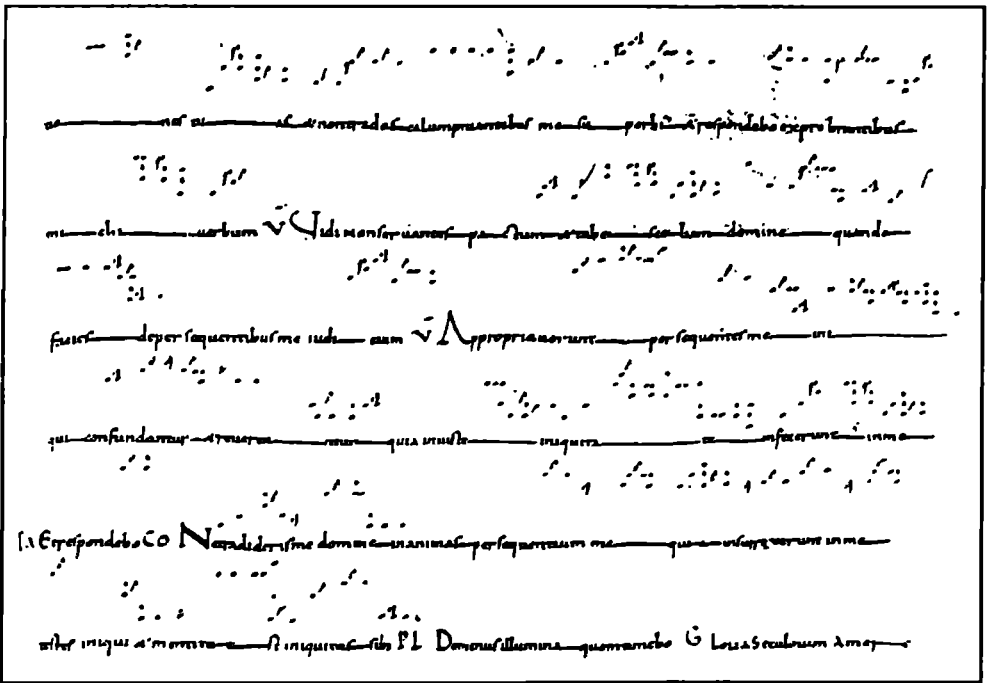 nes ui as & non tradas calumpniantibus me su perbis & respondebo exprobrantibus
mi chi uerbum V Vidi non seruantes pa ctum & tabe scebam domine quando
facies de persequentibus me iudi cium V Appropriauerunt persequentes me ini
qui confundantur & reuerean tur quia iniuste iniquita te infecerunt in me
Et respondebo CO Ne tradideris me domine in animas persequentium me quia insurrexerunt in me
testes iniqui & mentita est iniquitas sibi PL Dominus illumina quem timebo G Loria Seculorum Amen